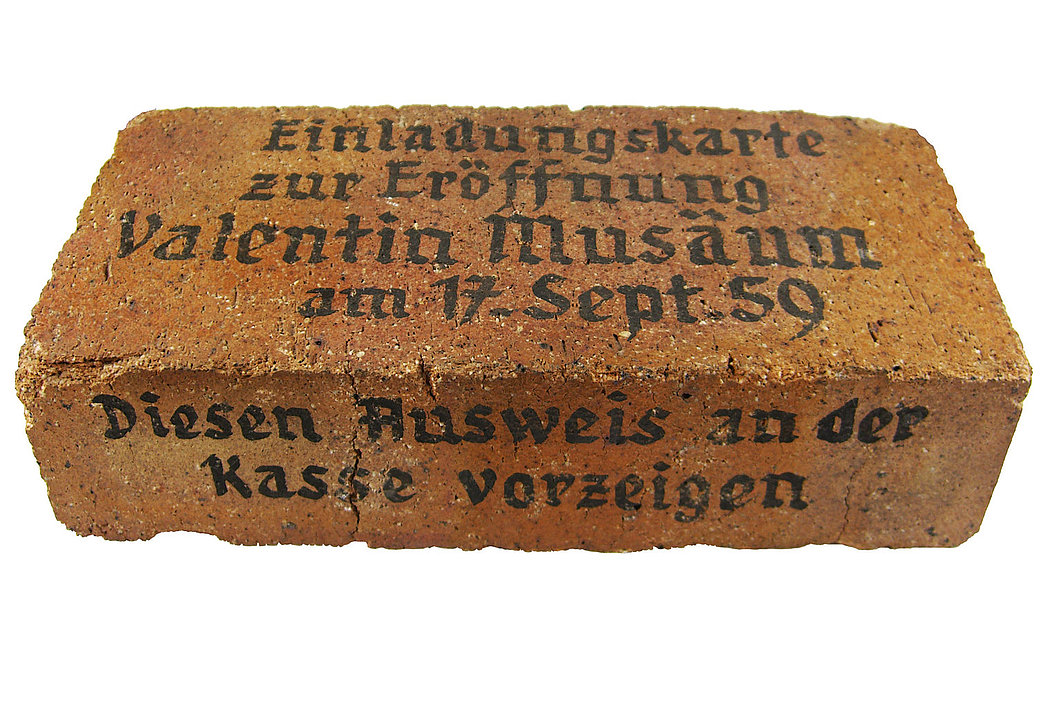 Einladungskarte
zur Eröffnung
Valentin Musäum
am 17. Sept. 59
Diesen Ausweis an der
Kasse vorzeigen